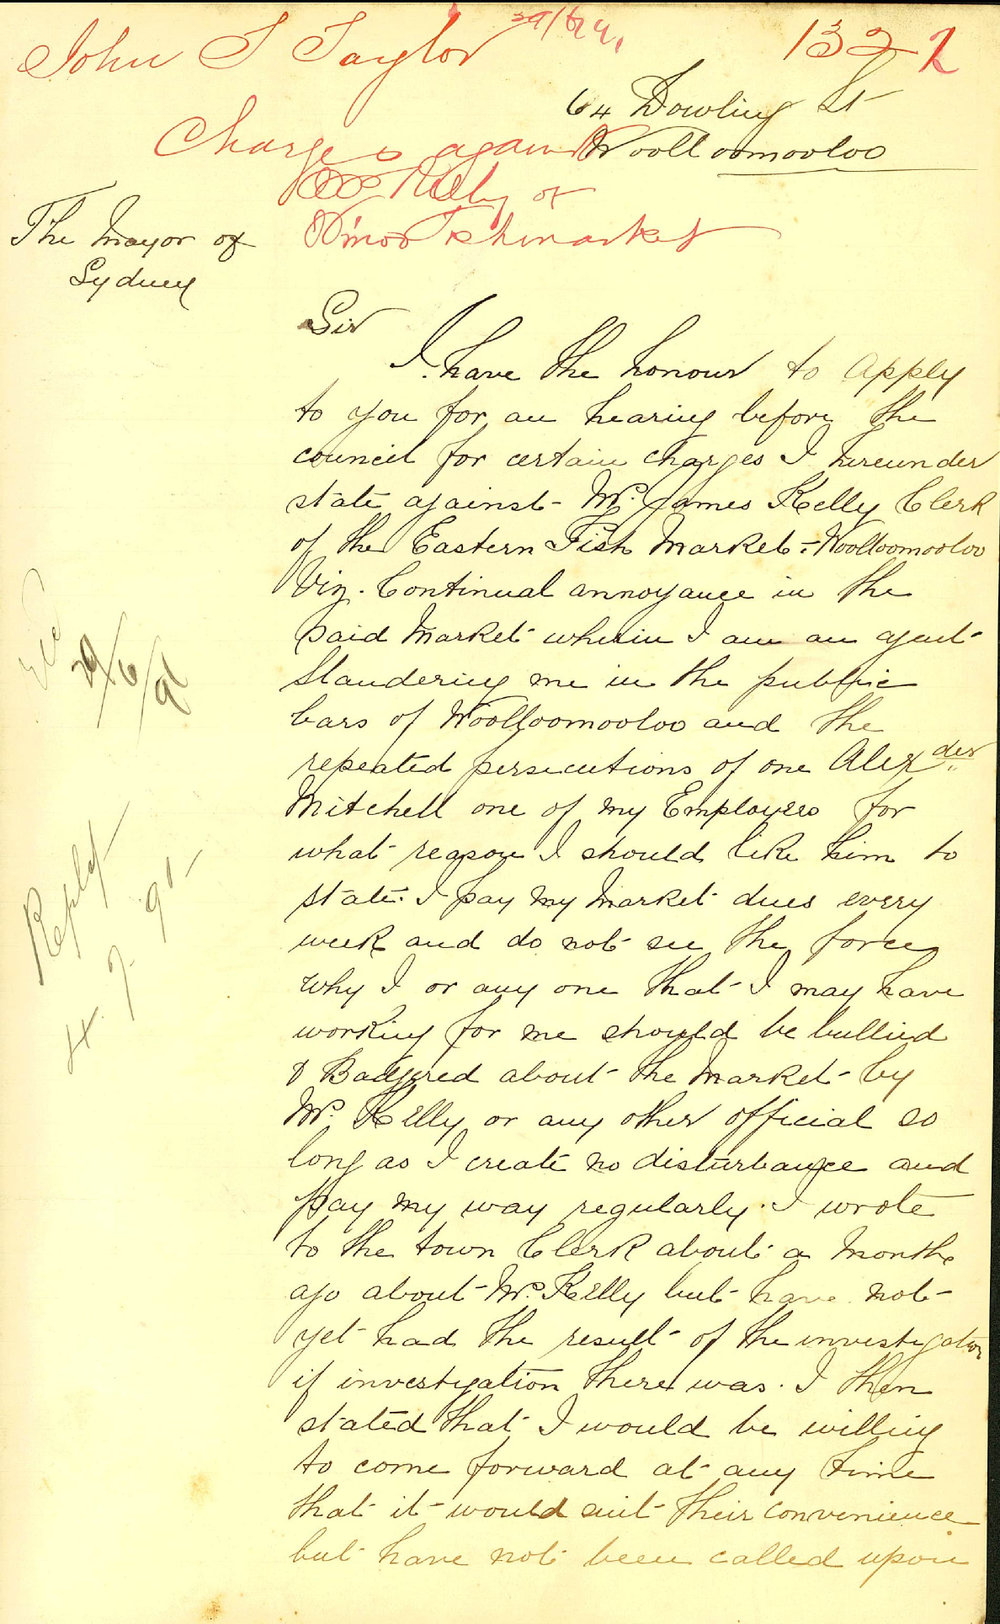 John S Taylor 29/6/91
1322
64 Dowling St
Woolloomooloo
Charges against
Kelly of
W'moo Fishmarket
The Mayor of
Sydney
Sir
I have the honour to apply
to you for an hearing before the
council for certain charges I hereunder
state against Mr. James Kelly Clerk
of the Eastern Fish Market - Woolloomooloo
Viz. Continual annoyance in the
said Market wherein I am an agent
Slandering me in the public
bars of Woolloomooloo and the
repeated persecutions of one Alexder
Mitchell one of my Employees for
what reason I should like him to
state. I pay my Market dues every
week and do not see the force
why I or any one that I may have
working for me should be bullied
& Badgered about the Market by
Mr. Kelly or any other official so
long as I create no disturbance and
pay my way regularly. I wrote
to the town Clerk about a month
ago about Mr. Kelly but have not
yet had the result of the investigation
if investigation there was. I then
stated that I would be willing
to come forward at any time
that it would suit their convenience
but have not been called upon
29/6/91
Reply
4.7.91